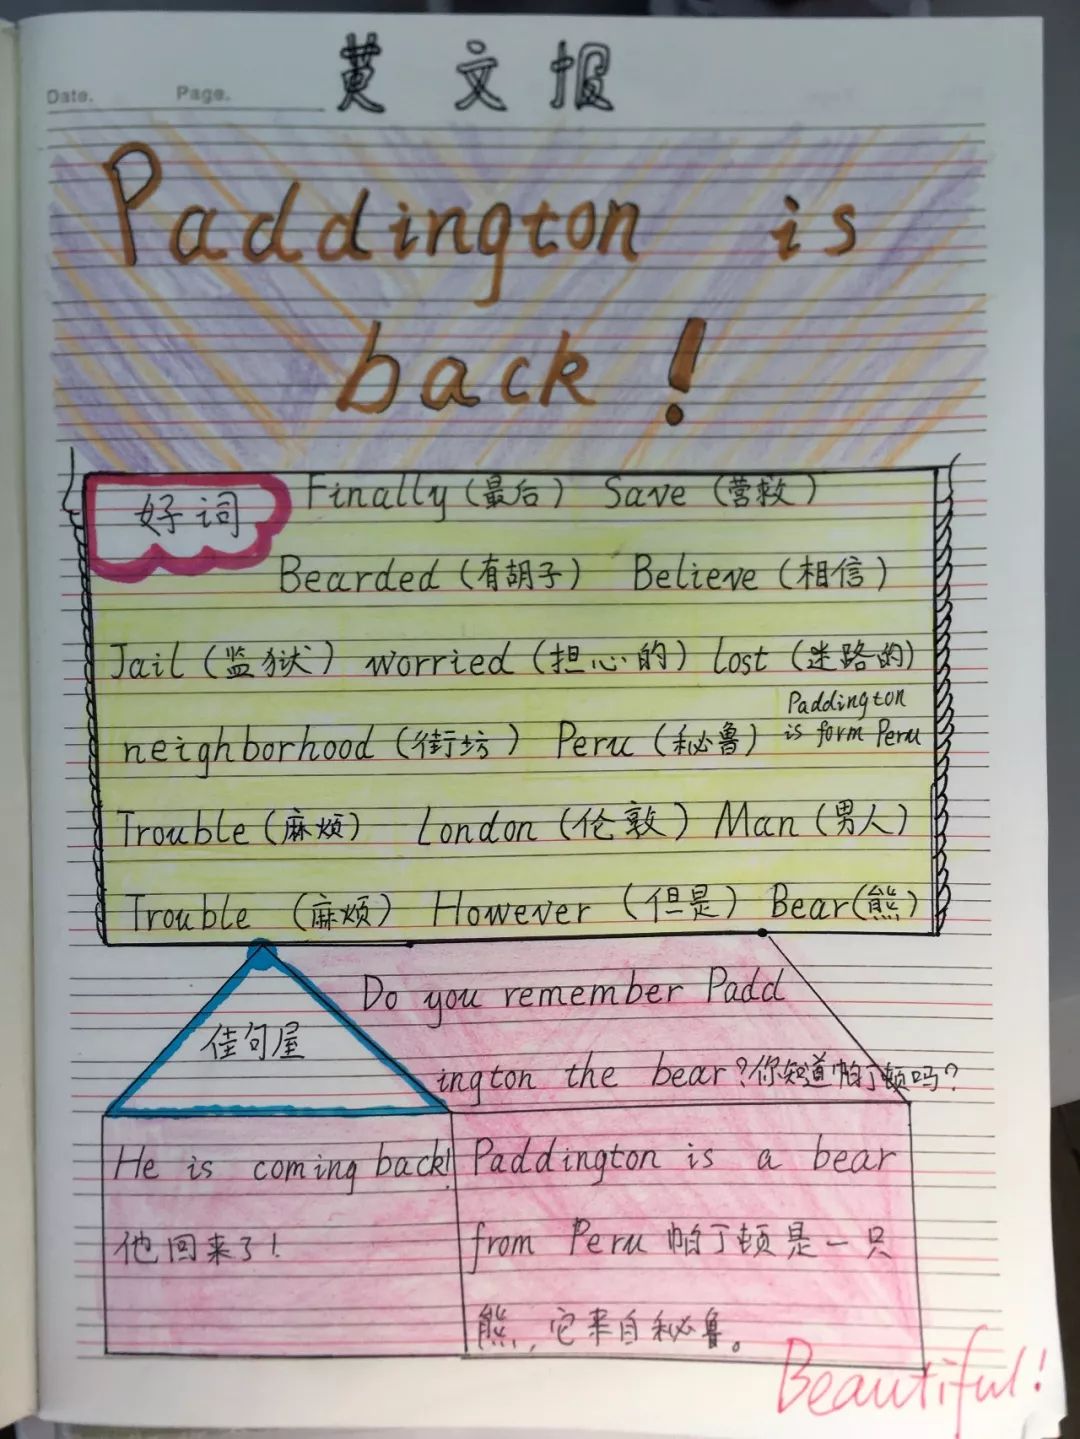 Date. Page.
英文报
Paddington is
back!
好词
Finally(最后) Save(营救)
Bearded(有胡子) Believe(相信)
Jail(监狱) worried(担心的) lost(迷路的)
Paddington
is form Peru
neighborhood(街坊) Peru(秘鲁)
Trouble(麻烦) London(伦敦) Man(男人)
Trouble (麻烦) However(但是) Bear(熊)
佳句屋
Do you remember Padd
ington the bear?你知道帕丁顿吗?
He is coming back!
他回来了!
Paddington is a bear
from Peru 帕丁顿是一只
熊,它来自秘鲁。
Beautiful!